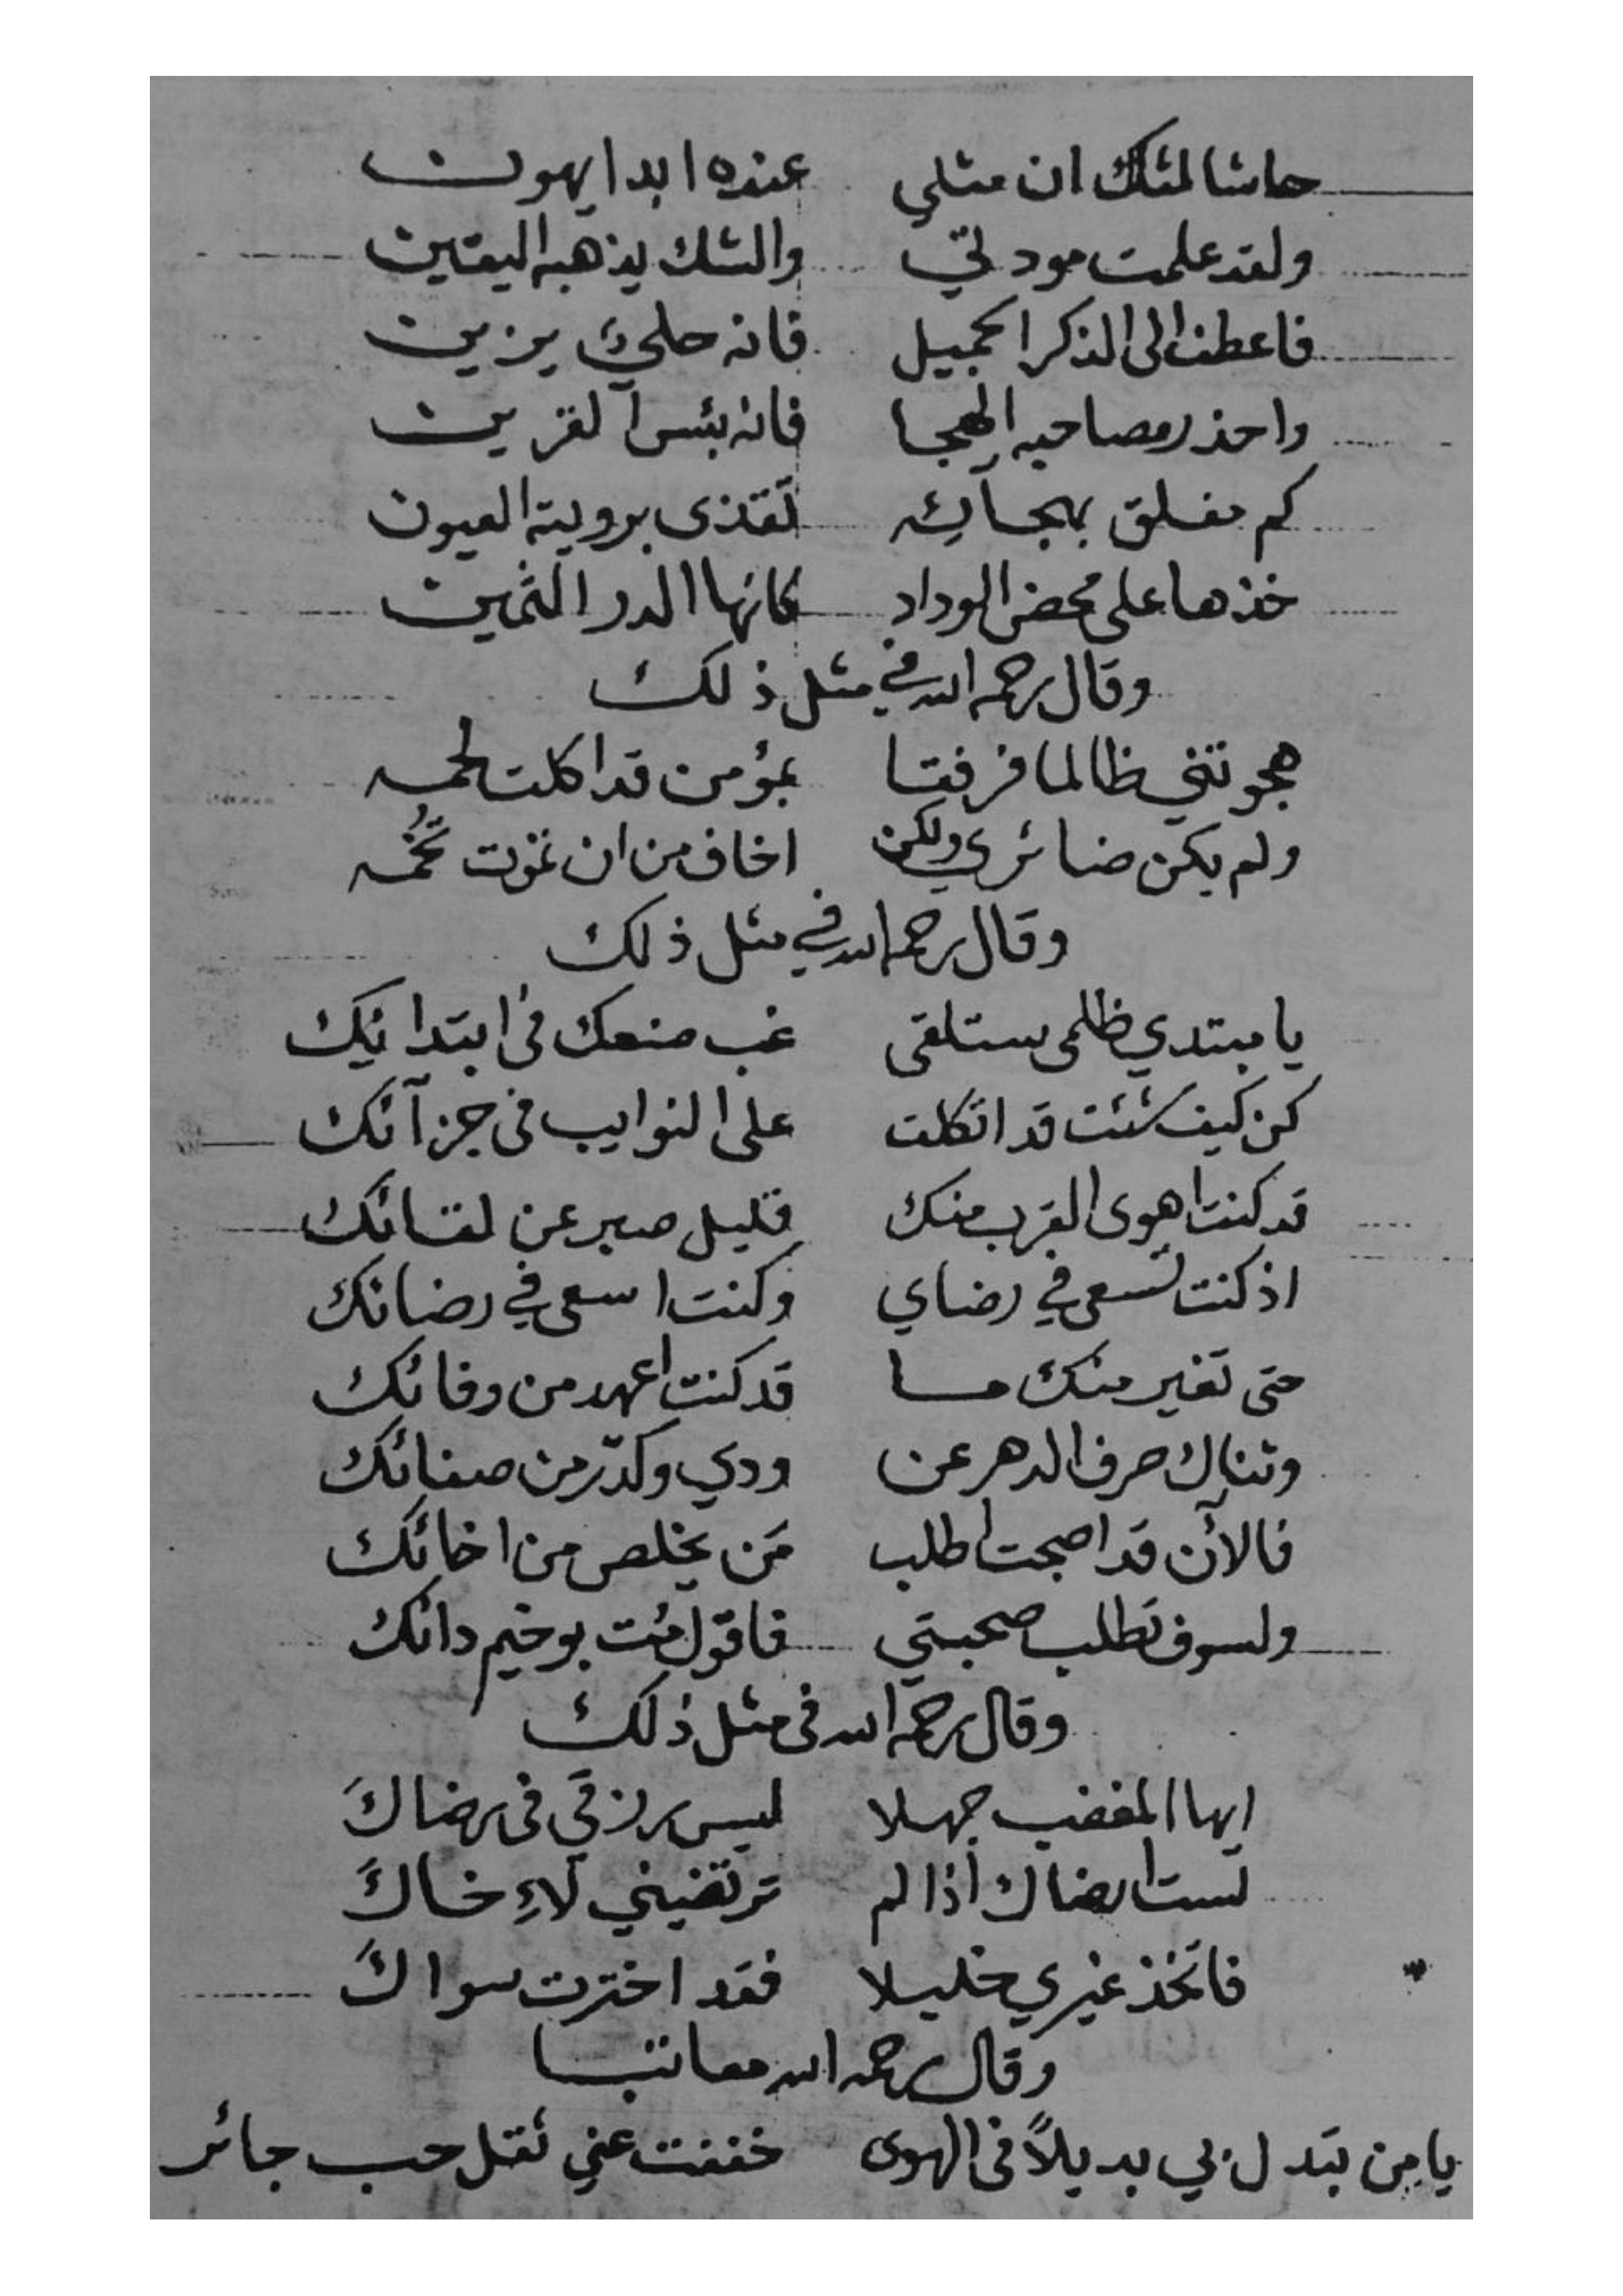 حاشا لمثلك ان مثلي عنده ابدا يهون
ولقد علمت مودتي والشك يذهبه اليقين
فاعطف الى الذكر الجميل فانه حلي يزين
واحذر مصاحبه الهجا فانه بئس القرين
كم مفلق بهجآئه تقذى برويته العيون
خذها على محض الوداد كانها الدر الثمين
وقال رحمه الله في مثل ذلك
هجوتني ظالما فرفقا بمؤمن قد اكلت لحمه
ولم يكن ضائري ولكن اخاف من ان تموت تخمه
وقال رحمه الله في مثل ذلك
يا مبتدي ظلمي ستلقى غب صنعك في ابتدائيك
كن كيف شئت قد اتكلت على النوايب في جزآئك
قد كنت اهوى القرب منك قليل صبر عن لقائك
اذ كنت تسعى في رضاي وكنت اسعى في رضائك
حتى تغير منك ما قد كنت اعهد من وفائك
وثناك صرف الدهر عن ودي وكدّر من صفائك
فالآن قد اصبحت اطلب مَن يخلص من اخائك
ولسوف تطلب صحبتي فاقول مُت بوخيم دائك
وقال رحمه الله في مثل ذلك
ايها المغضب جهلا ليس رزقي في رضاكَ
لست ارضاك اذا لم ترتضيني لاِخاكَ
فاتخذ غيري خليلا فقد اخترت سواكَ
وقال رحمه الله معاتبا
يا من تبدل بي بديلاً في الهوى خففت عني ثقل حب جائر